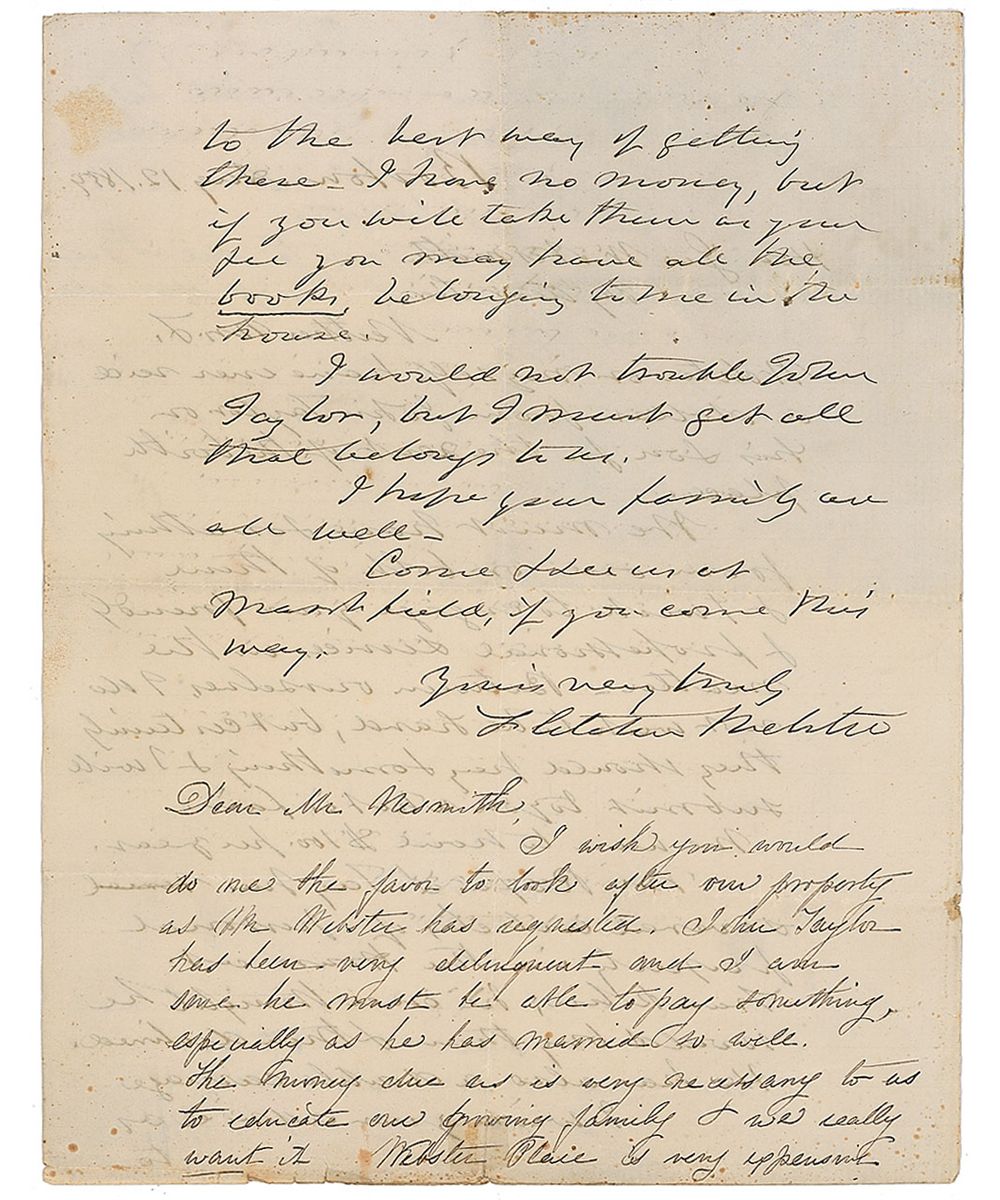 to the best way of getting
these_ I have no money, but
if you will take them as your
fee you may have all the
books, belonging to me in the
house.
I would not trouble John
Taylor, but I must get all
that belongs to us.
I hope your family are
all well_
Come & see us at
Marshfield, if you come this
way.
Yours very truly
Fletcher Webster
Dear Mr Nesmith,
I wish you would
do me the favor to look after our property
as Mr Webster has requested. John Taylor
has been very delinquent and I am
sure he must be able to pay something,
especially as he has married so well.
The money due us is very necessary to us
to educate our growing family & we really
want it Webster Place is very expensive